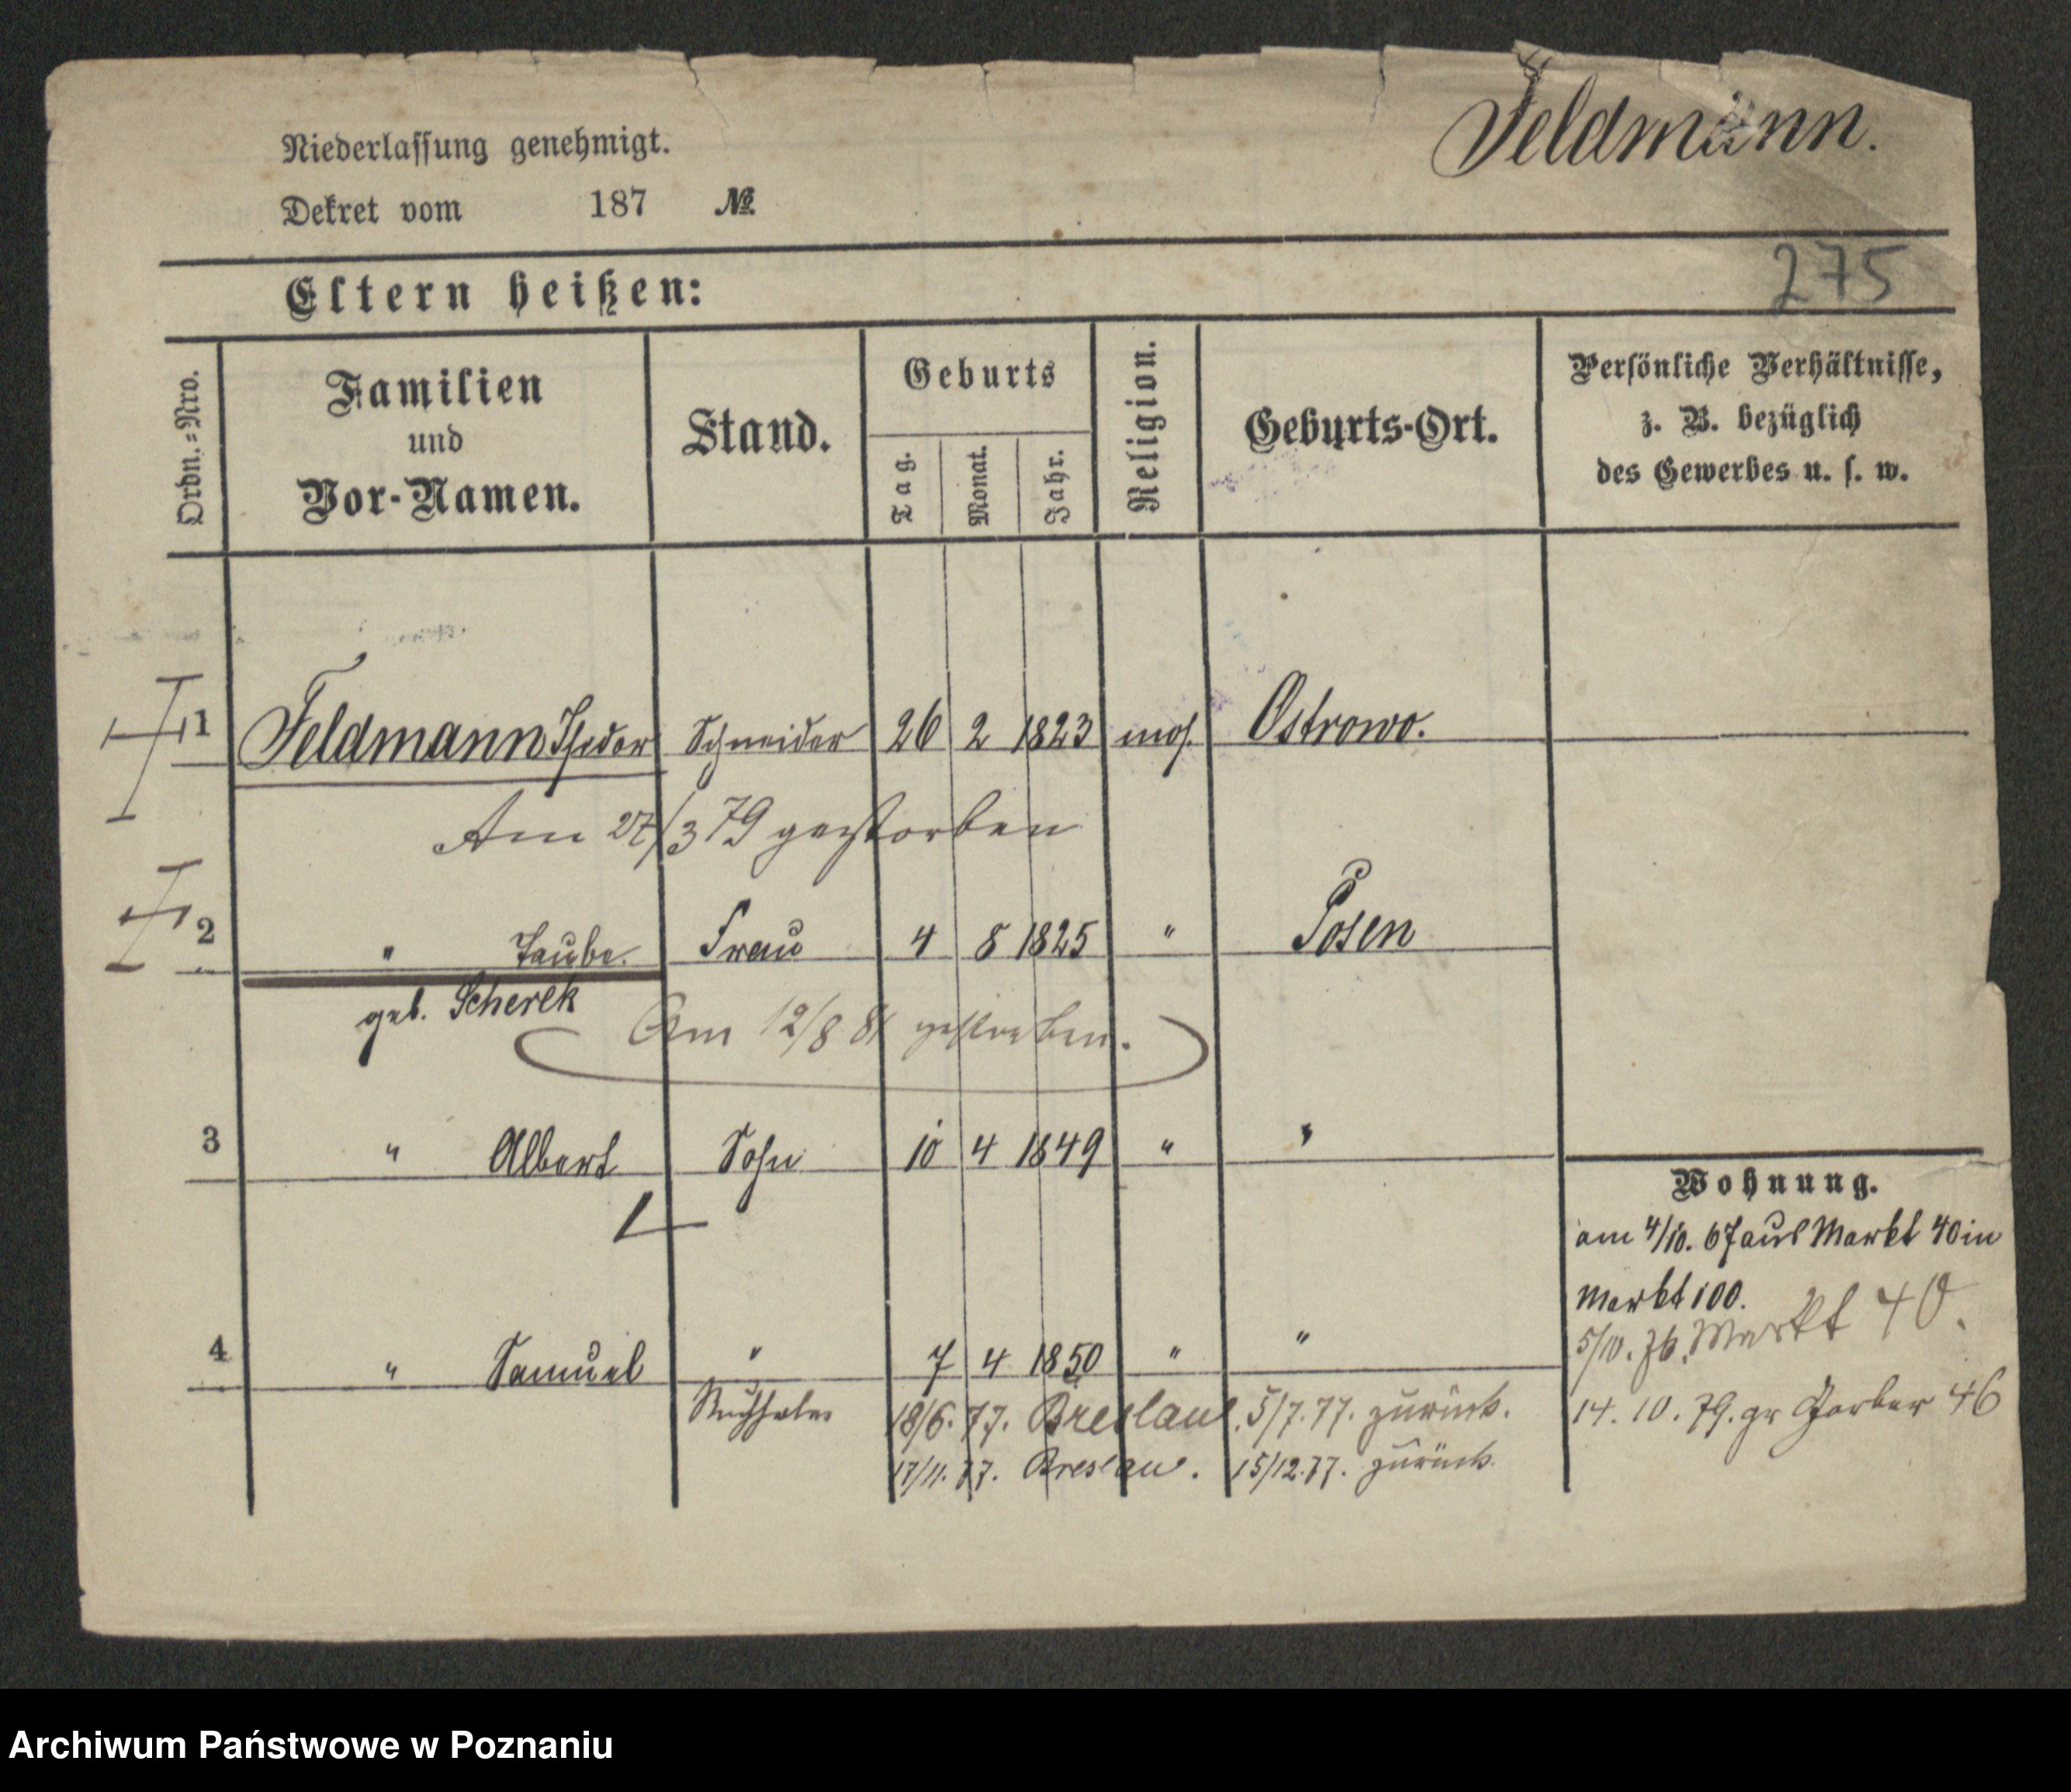 Feldmann.
Niederlassung genehmigt.
Dekret vom 187 №
275
Eltern heißen:
Ordn.=Nro. Familien und Vor-Namen. Stand. Geburts Tag. Monat. Jahr. Religion. Geburts-Ort. Persönliche Verhältnisse, z. B. bezüglich des Gewerbes u. s. w.
1 Feldmann Isidor Schneider 26 2 1823 mos. Ostrowo.
Am 27/3 79 gestorben
2 " Taube. Frau 4 8 1825 " Posen
geb. Scherek
Am 12/8 81 gestorben.
3 " Albert Sohn 10 4 1849 " "
4 " Samuel " 7 4 1850 " "
18/6. 77. Breslau. 5/7. 77. zurück.
17/11. 77. Breslau. 15/12. 77. zurück.
Wohnung.
am 4/10. 67 aus Markt 40 in
Markt 100.
5/10. 76. Markt 40.
14. 10. 79. gr Gerber 46
Archiwum Państwowe w Poznaniu